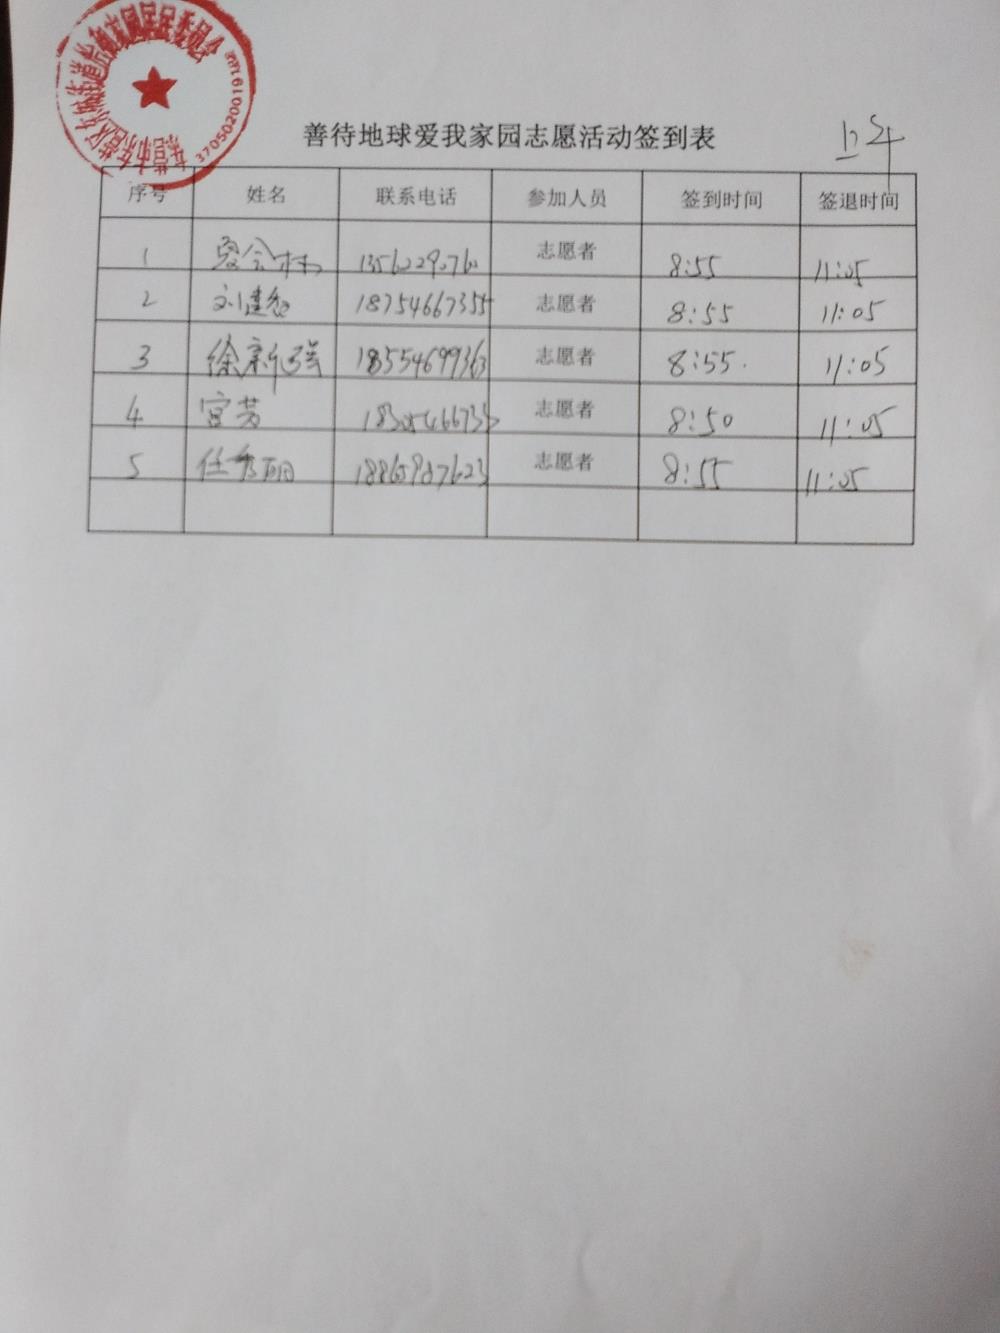 善待地球爱我家园志愿活动签到表
上午
3705020019188
序号 姓名 联系电话 参加人员 签到时间 签退时间
1 志愿者 8:55 11:05
2 18754667355 志愿者 8:55 11:05
3 徐新强 18554699363 志愿者 8:55. 11:05
4 宫芳 志愿者 8:50 11:05
5 任秀丽 18865987623 志愿者 8:55 11:05